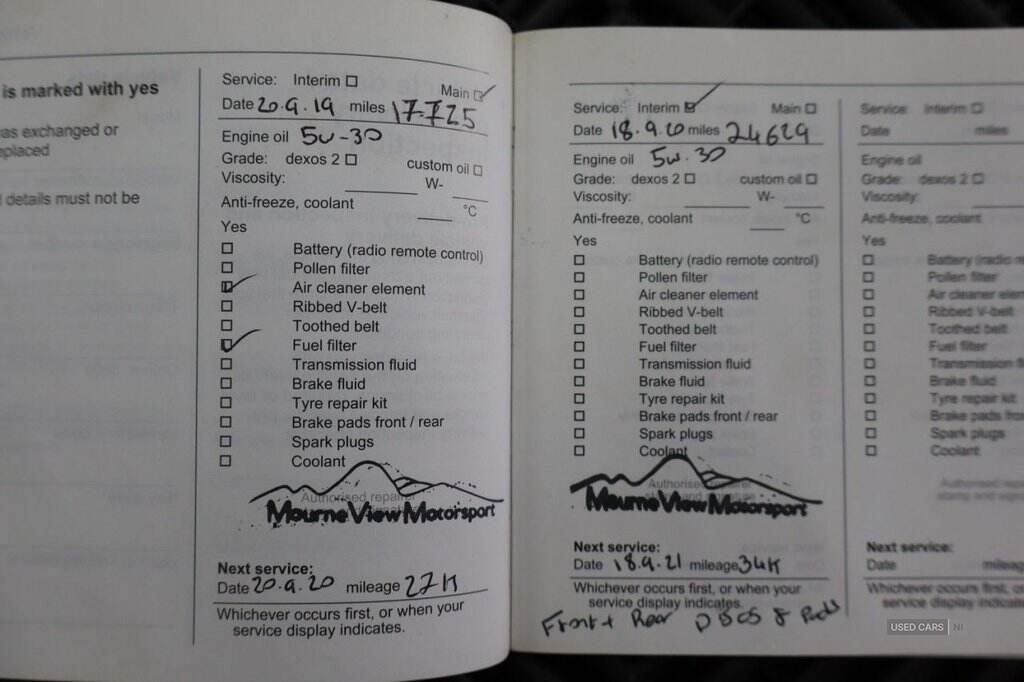 is marked with yes
was exchanged or
replaced
details must not be
Service: Interim ☐ Main ☑
Date 20.9.19 miles 17725
Engine oil 5W-30
Grade: dexos 2 ☐ custom oil ☐
Viscosity: W-
Anti-freeze, coolant °C
Yes
☐ Battery (radio remote control)
☐ Pollen filter
☑ Air cleaner element
☐ Ribbed V-belt
☐ Toothed belt
☑ Fuel filter
☐ Transmission fluid
☐ Brake fluid
☐ Tyre repair kit
☐ Brake pads front / rear
☐ Spark plugs
☐ Coolant
Authorised repairer
Mourne View Motorsport
Next service:
Date 20.9.20 mileage 27K
Whichever occurs first, or when your
service display indicates.
Service: Interim ☑ Main ☐
Date 18.9.20 miles 24629
Engine oil 5W.30
Grade: dexos 2 ☐ custom oil ☐
Viscosity: W-
Anti-freeze, coolant °C
Yes
☐ Battery (radio remote control)
☐ Pollen filter
☐ Air cleaner element
☐ Ribbed V-belt
☐ Toothed belt
☐ Fuel filter
☐ Transmission fluid
☐ Brake fluid
☐ Tyre repair kit
☐ Brake pads front / rear
☐ Spark plugs
☐ Coolant
Authorised repairer
Mourne View Motorsport
Next service:
Date 18.9.21 mileage 34K
Whichever occurs first, or when your
service display indicates.
Front + Rear & Pads
Service: Interim ☐
Date miles
Engine oil
Grade: dexos 2 ☐
Viscosity:
Anti-freeze, coolant
Yes
☐ Battery (radio
☐ Pollen filter
☐ Air cleaner
☐ Ribbed V-belt
☐ Toothed belt
☐ Fuel filter
☐ Transmission
☐ Brake fluid
☐ Tyre repair kit
☐ Brake pads
☐ Spark plugs
☐ Coolant
Authorised
stamp and
Next service:
Date
Whichever occurs
service display
USED CARS NI